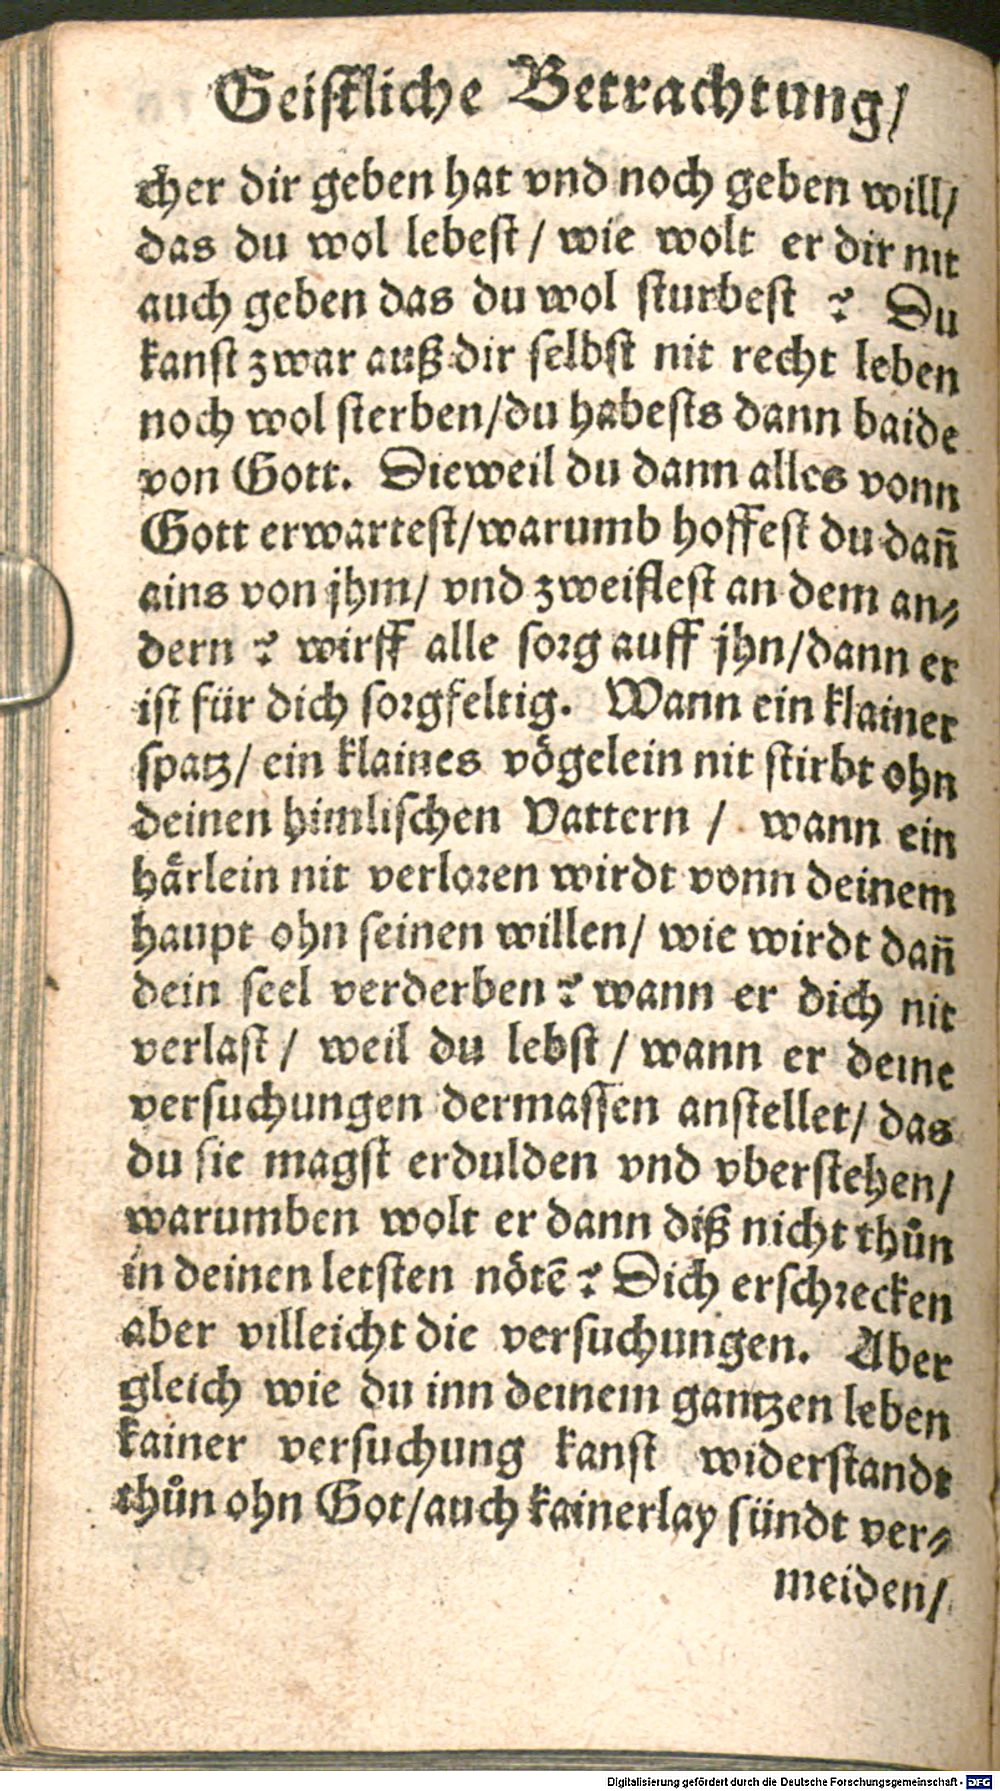 Geistliche Betrachtung/
cher dir geben hat vnd noch geben will/
das du wol lebest / wie wolt er dir nit
auch geben das du wol sturbest ? Du
kanst zwar auß dir selbst nit recht leben
noch wol sterben/du habests dann baide
von Gott. Dieweil du dann alles vonn
Gott erwartest/warumb hoffest du dañ
ains von jhm/ vnd zweiflest an dem an-
dern ? wirff alle sorg auff jhn/dann er
ist für dich sorgfeltig. Wann ein klainer
spatz/ ein klaines vôgelein nit stirbt ohn
deinen himlischen Vattern / wann ein
hårlein nit verloren wirdt vonn deinem
haupt ohn seinen willen/ wie wirdt dañ
dein seel verderben ? wann er dich nit
verlast / weil du lebst / wann er deine
versuchungen dermassen anstellet/ das
du sie magst erdulden vnd vberstehen/
warumben wolt er dann diß nicht thůn
in deinen letsten nôtē ? Dich erschrecken
aber villeicht die versuchungen. Aber
gleich wie du inn deinem gantzen leben
kainer versuchung kanst widerstandt
thůn ohn Got/auch kainerlay sündt ver-
meiden/
Digitalisierung gefördert durch die Deutsche Forschungsgemeinschaft - DFG